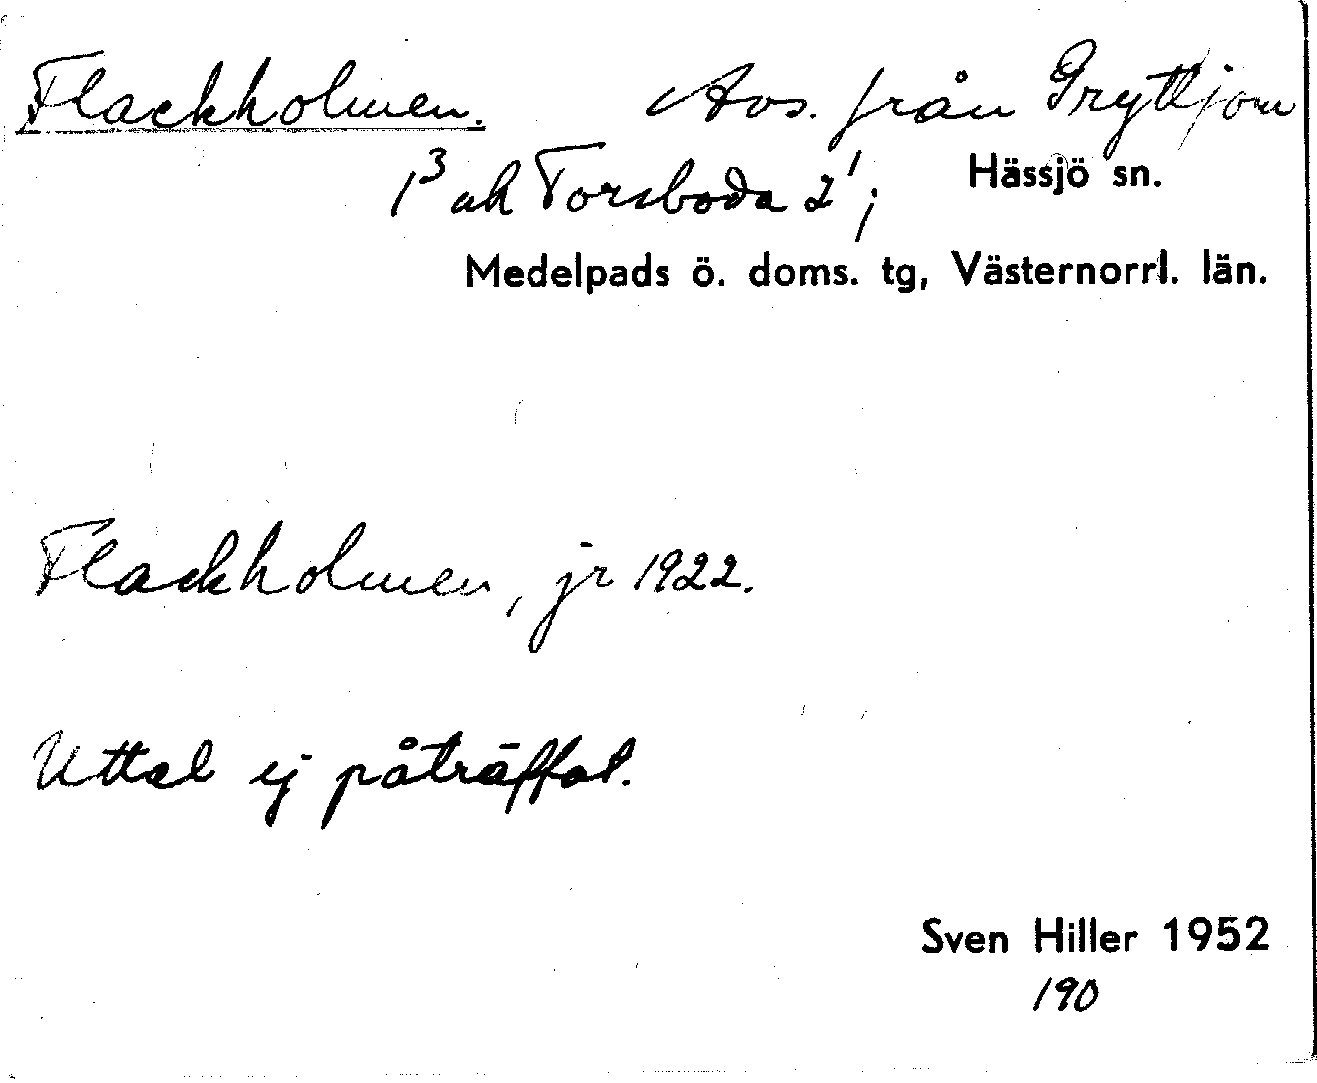 Flackholmen. Avs. från Gryttjom
1³ och Torsboda 2¹; Hässjö sn.
Medelpads ö. doms. tg, Västernorrl. län.
Flackholmen, jr 1922.
Uttal ej påträffat.
Sven Hiller 1952
190